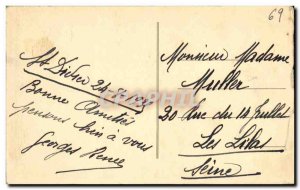 69
Bonne Amitiés
pensons bien à vous
Georges Renée
Monsieur Madame
Muller
30 Rue du 14 Juillet
Les Lilas
Seine